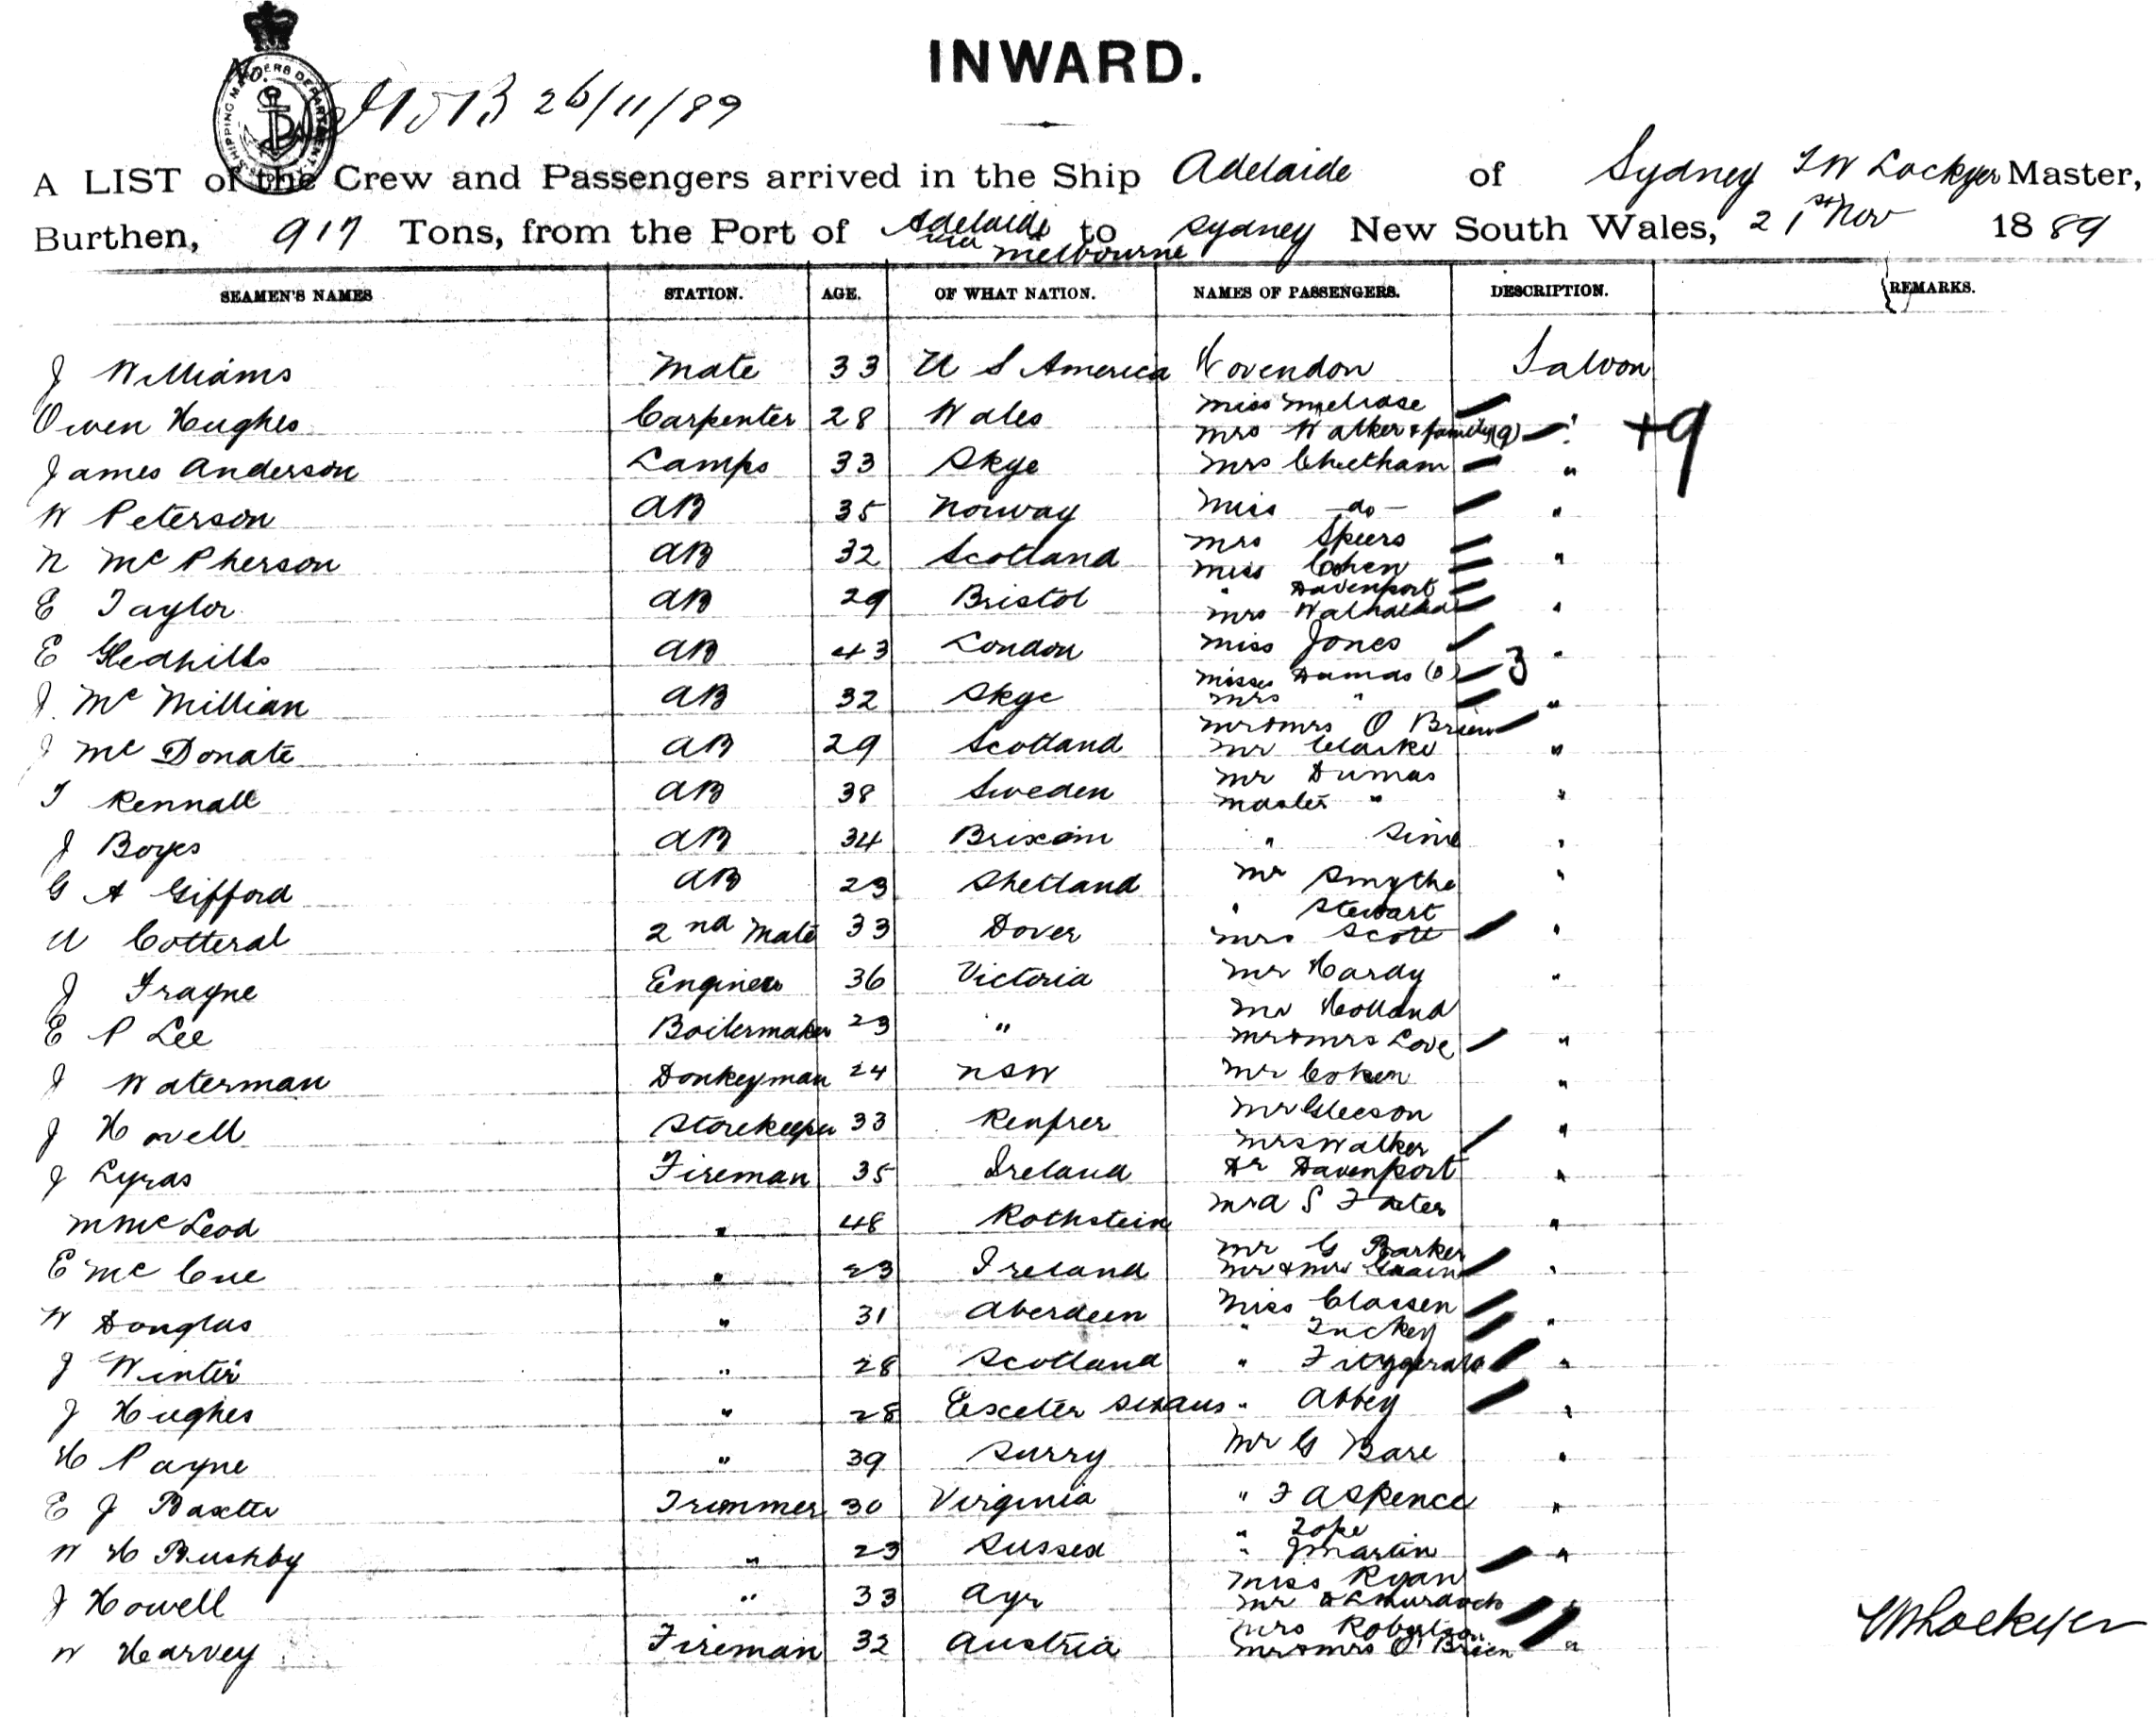 INWARD.
No.
SHIPPING MASTERS DEPARTMENT
26/11/89
A LIST of the Crew and Passengers arrived in the Ship Adelaide of Sydney T W Lockyer Master,
Burthen, 917 Tons, from the Port of Adelaide via Melbourne to Sydney New South Wales, 21st Nov 1889
SEAMEN'S NAMES STATION. AGE. OF WHAT NATION. NAMES OF PASSENGERS. DESCRIPTION. REMARKS.
J Williams Mate 33 U S America Wovendon Saloon
Miss Melrose
Owen Hughes Carpenter 28 Wales Mrs Walker & family (9) " +9
James Anderson Lamps 33 Skye Mrs Cheetham "
W Peterson AB 35 Norway Miss -do- "
Mrs Speers
N McPherson AB 32 Scotland Miss Cohen "
" Davenport
E Taylor AB 29 Bristol Mrs "
E Gledhills AB 43 London Miss Jones "
Misses Dumas (3) 3
J. McMillian AB 32 Skye Mrs " "
Mr & Mrs O Brien
J McDonate AB 29 Scotland Mr Clarke "
Mr Dumas
T Rennall AB 38 Sweden Master " "
J Boyes AB 34 Brixom " Sime "
G A Gifford AB 23 Shetland Mr Smythe "
" Stewart
W Cotteral 2nd Mate 33 Dover Mrs Scott "
J Frayne Engineer 36 Victoria Mr Hardy "
Mr Holland
E P Lee Boilermaker 23 " Mr & Mrs Love "
J Waterman Donkeyman 24 NSW Mr Cohen "
Mr Gleeson
J Howell Storekeeper 33 Renfrer Mrs Walker "
J Lyras Fireman 35 Ireland Dr Davenport "
M McLeod " 48 Rothstein S "
Mr G Barker
E McCue " 23 Ireland Mr & Mrs "
W Douglas " 31 Aberdeen Miss Classen "
" Tuckey
J Winter " 28 Scotland " Fitzgerald "
J Hughes " 28 Exeter " Abbey "
H Payne " 39 Surry Mr G Bare "
E J Baxter Trimmer 30 Virginia " F A Spence "
" Tope
W H Bushby " 23 Sussex " J Martin "
Miss Ryan
J Howell " 33 Ayr Mr Murdoch "
Mrs Robertson
W Harvey Fireman 32 Austria Mr & Mrs O'Brien "
T W Lockyer